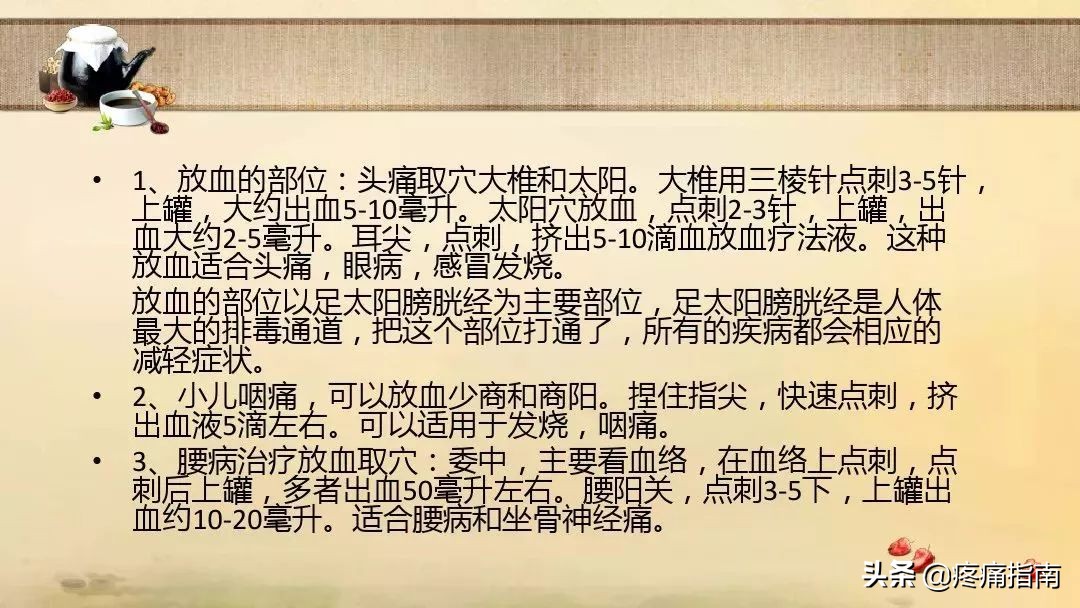 • 1、放血的部位：头痛取穴大椎和太阳。大椎用三棱针点刺3-5针，
上罐，大约出血5-10毫升。太阳穴放血，点刺2-3针，上罐，出
血大约2-5毫升。耳尖，点刺，挤出5-10滴血放血疗法液。这种
放血适合头痛，眼病，感冒发烧。
放血的部位以足太阳膀胱经为主要部位，足太阳膀胱经是人体
最大的排毒通道，把这个部位打通了，所有的疾病都会相应的
减轻症状。
• 2、小儿咽痛，可以放血少商和商阳。捏住指尖，快速点刺，挤
出血液5滴左右。可以适用于发烧，咽痛。
• 3、腰病治疗放血取穴：委中，主要看血络，在血络上点刺，点
刺后上罐，多者出血50毫升左右。腰阳关，点刺3-5下，上罐出
血约10-20毫升。适合腰病和坐骨神经痛。
头条 @疼痛指南